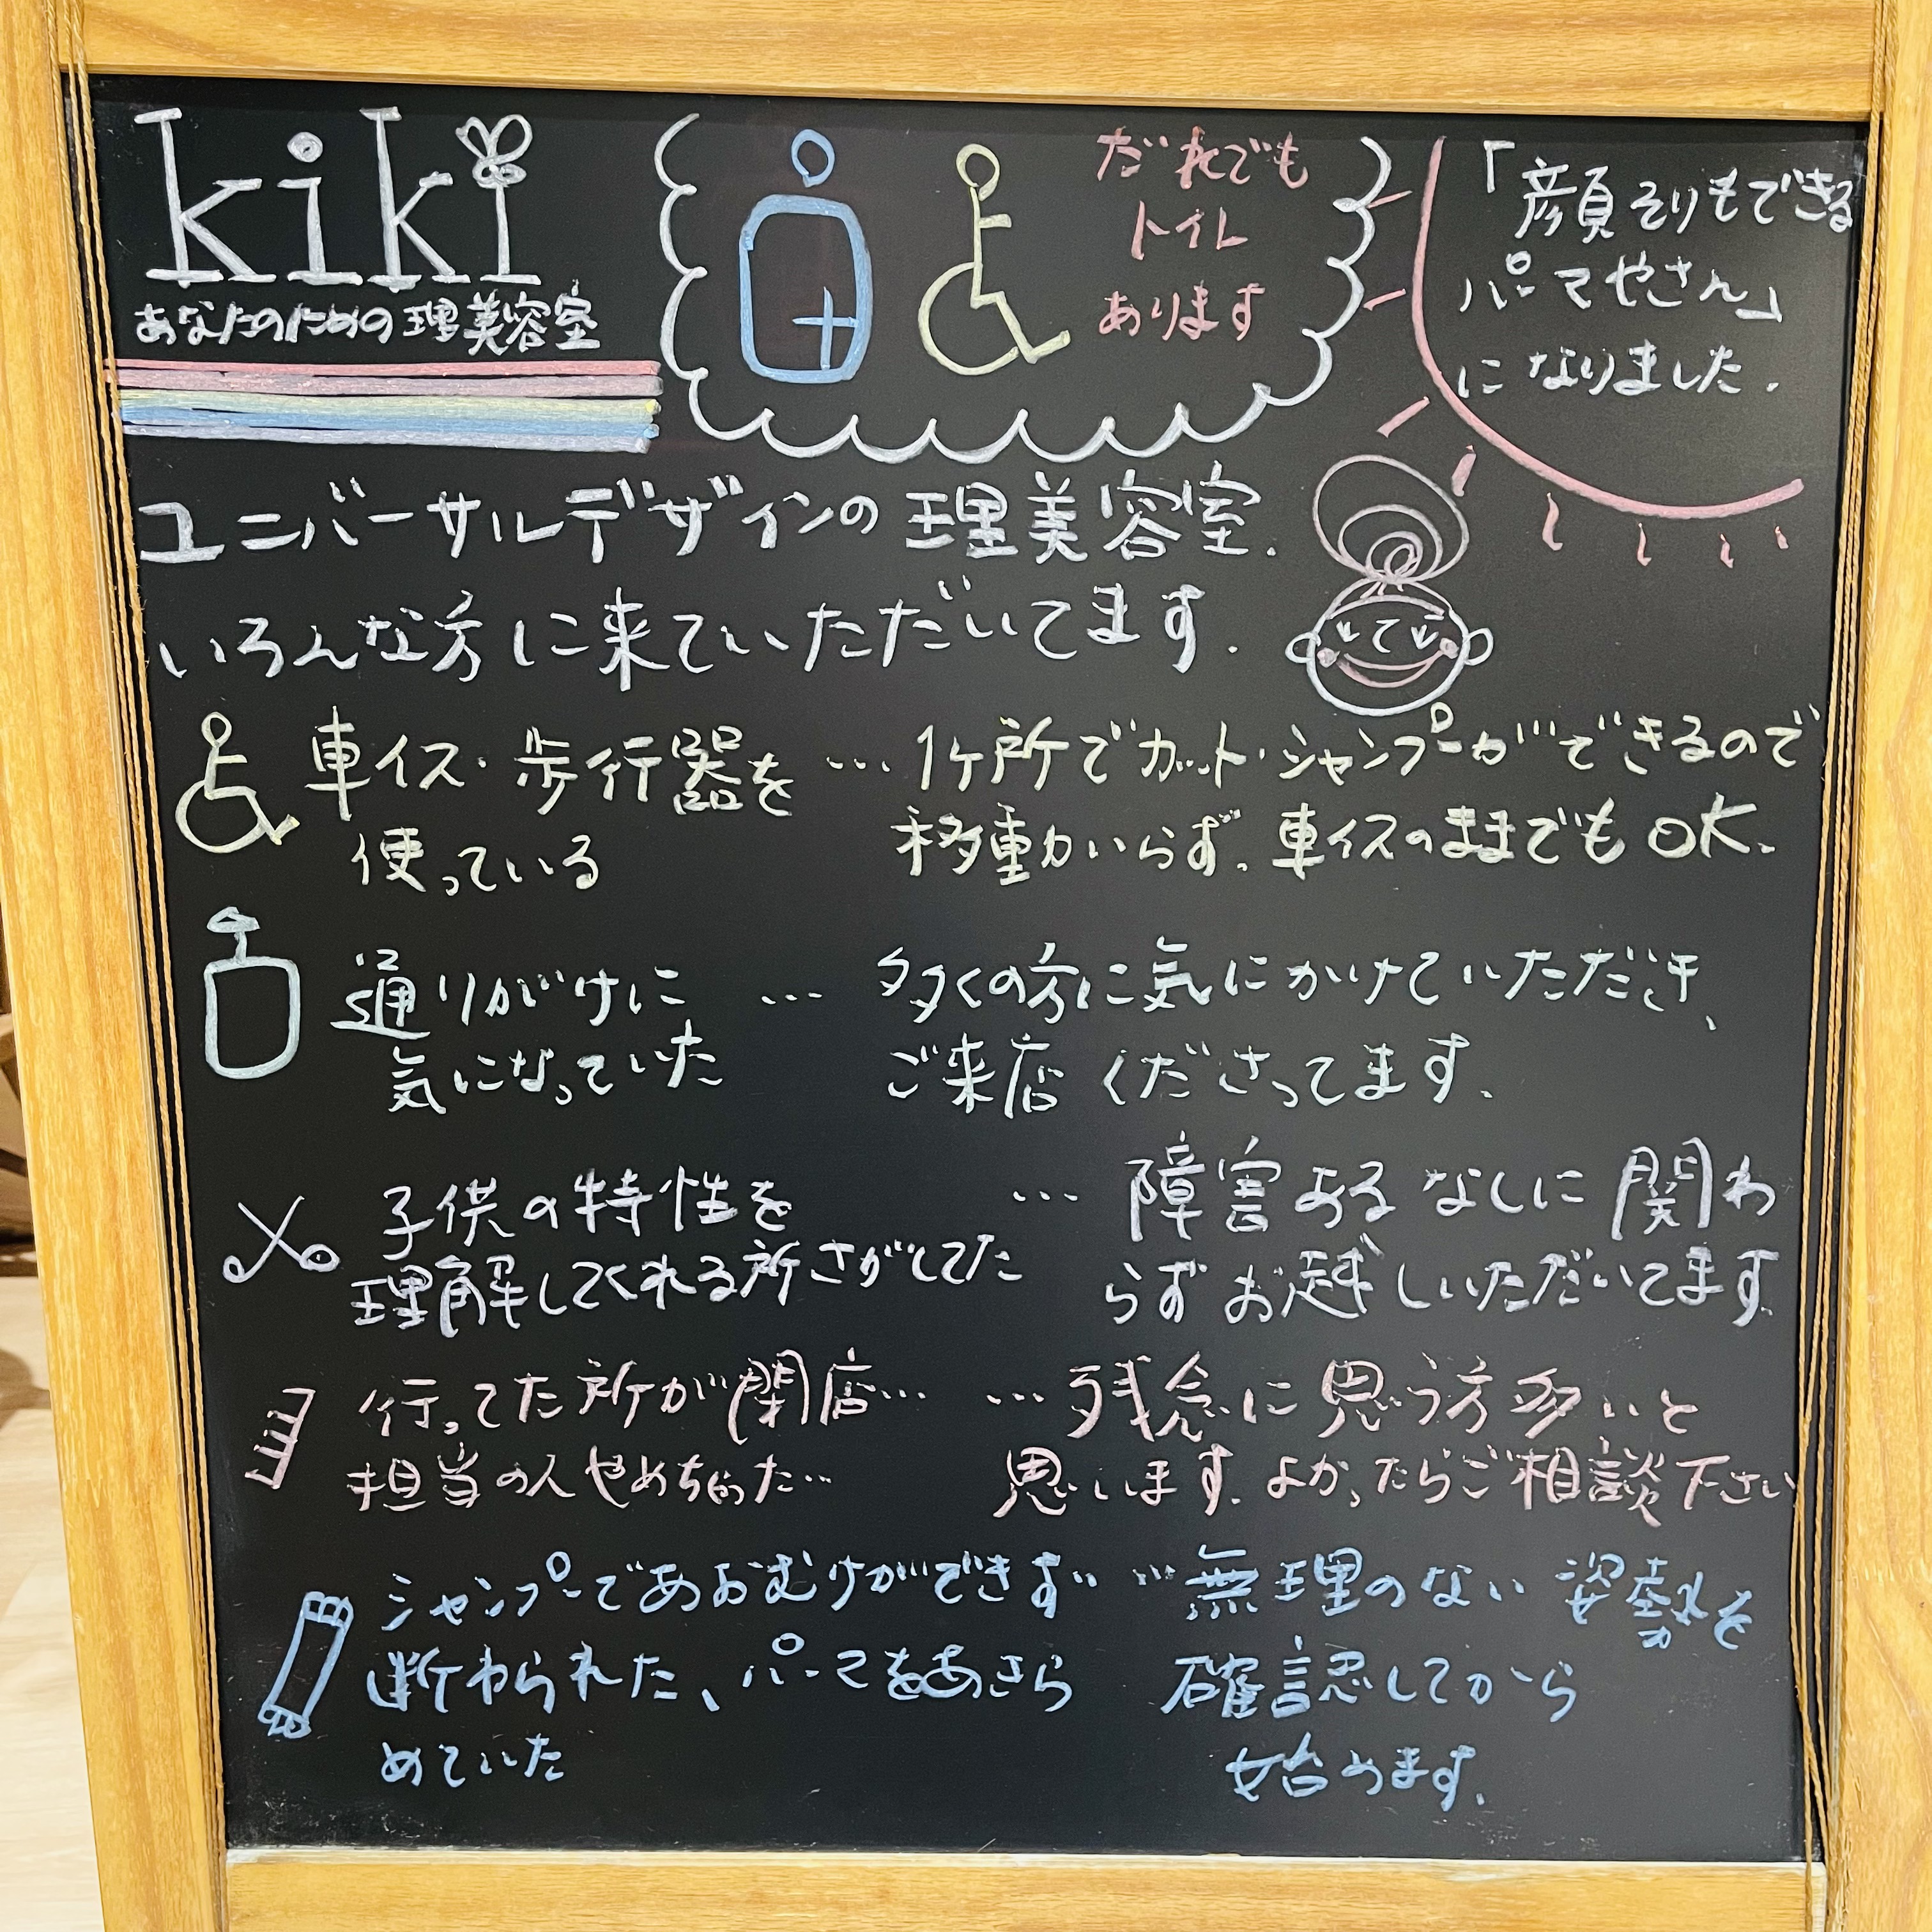 kiki
あなたのための理美容室
だれでも
トイレ
あります
「顔そりもできる
パーマやさん」
になりました.
ユニバーサルデザインの理美容室.
いろんな方に来ていただいてます.
車イス・歩行器を
使っている
…1ヶ所でカット・シャンプーができるので
移動いらず。車イスのままでもOK.
通りがけに
気になっていた
… 多くの方に気にかけていただき、
ご来店くださってます.
子供の特性を
理解してくれる所さがしてた
… 障害あるなしに関わ
らずお越しいただいてます.
行ってた所が閉店…
担当の人やめちゃった…
…残念に思う方多いと
思います.よかったらご相談下さい
シャンプーであおむけができず
断わられた、パーマをあきら
めていた
…無理のない姿勢を
確認してから
始めます.